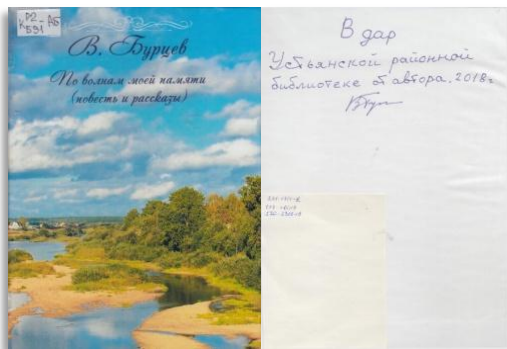 Р2
К 591 - АБ
В. Бурцев
По волнам моей памяти
(повесть и рассказы)
В дар
Устьянской районной
библиотеке от автора. 2018г